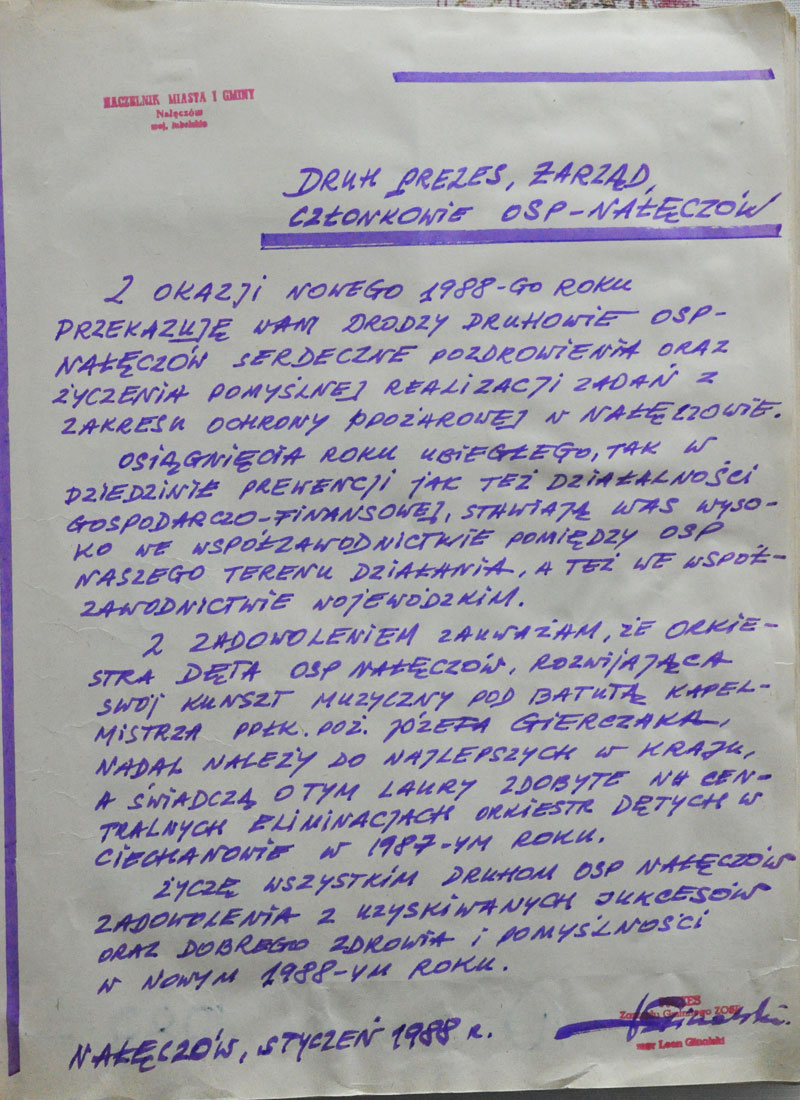 NACZELNIK MIASTA I GMINY
Nałęczów
woj. lubelskie
DRUH PREZES, ZARZĄD,
CZŁONKOWIE OSP-NAŁĘCZÓW
Z OKAZJI NOWEGO 1988-GO ROKU
PRZEKAZUJĘ WAM DRODZY DRUHOWIE OSP-
NAŁĘCZÓW SERDECZNE POZDROWIENIA ORAZ
ŻYCZENIA POMYŚLNEJ REALIZACJI ZADAŃ Z
ZAKRESU OCHRONY PPOŻAROWEJ W NAŁĘCZOWIE.
OSIĄGNIĘCIA ROKU UBIEGŁEGO, TAK W
DZIEDZINIE PREWENCJI JAK TEŻ DZIAŁALNOŚCI
GOSPODARCZO-FINANSOWEJ, STAWIAJĄ WAS WYSO-
KO WE WSPÓŁZAWODNICTWIE POMIĘDZY OSP
NASZEGO TERENU DZIAŁANIA, A TEŻ WE WSPÓŁ-
ZAWODNICTWIE WOJEWÓDZKIM.
Z ZADOWOLENIEM ZAUWAŻAM, ŻE ORKIE-
STRA DĘTA OSP NAŁĘCZÓW, ROZWIJAJĄCA
SWÓJ KUNSZT MUZYCZNY POD BATUTĄ KAPEL-
MISTRZA PPŁK. POŻ. JÓZEFA GIERCZAKA,
NADAL NALEŻY DO NAJLEPSZYCH W KRAJU,
A ŚWIADCZĄ O TYM LAURY ZDOBYTE NA CEN-
TRALNYCH ELIMINACJACH ORKIESTR DĘTYCH W
CIECHANOWIE W 1987-YM ROKU.
ŻYCZĘ WSZYSTKIM DRUHOM OSP NAŁĘCZÓW
ZADOWOLENIA Z UZYSKIWANYCH SUKCESÓW
ORAZ DOBREGO ZDROWIA I POMYŚLNOŚCI
W NOWYM 1988-YM ROKU.
PREZES
Zarządu Gminnego ZOSP
mgr Leon Glinalski
NAŁĘCZÓW, STYCZEŃ 1988 r.